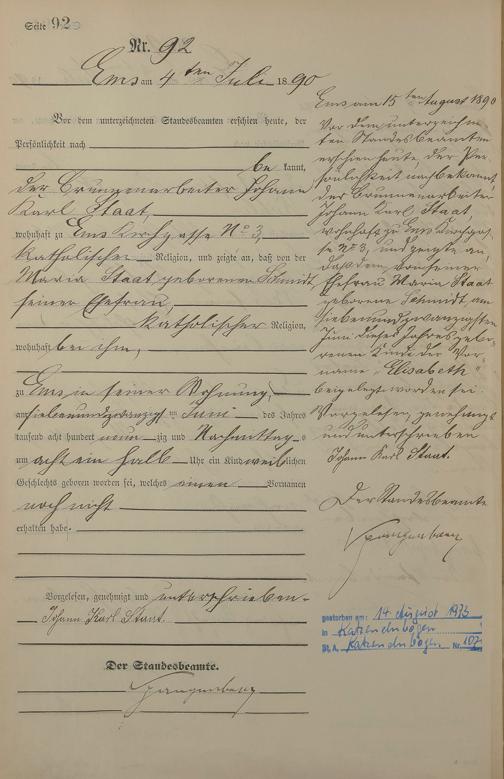 Seite 92
Nr. 92
Ems am 4ten Juli 1890
Vor dem unterzeichneten Standesbeamten erschien heute, der
Persönlichkeit nach
be kannt,
der Brunnenarbeiter Johann
Karl Staat,
wohnhaft zu Ems Kirchgasse No 3,
katholischer Religion, und zeigte an, daß von der
Maria Staat geborenen Schmidt
seiner Ehefrau,
katholischer Religion,
wohnhaft bei ihm,
zu Ems in seiner Wohnung,
am siebenundzwanzigsten Juni des Jahres
tausend acht hundert neun zig und Nachmittags
um acht ein halb Uhr ein Kind weiblichen
Geschlechts geboren worden sei, welches einen Vornamen
noch nicht
erhalten habe.
Vorgelesen, genehmigt und unterschrieben.
Johann Karl Staat.
Der Standesbeamte.
Spangenberg
Ems am 15ten August 1890
Vor dem unterzeichne
ten Standesbeamten
erschien heute, der Per
sönlichkeit nach bekannt,
der Brunnenarbeiter
Johann Karl Staat,
wohnhaft zu Ems Kirchgas
se No 3, und zeigte an,
daß dem von seiner
Ehefrau Maria Staat
geborene Schmidt am
siebenundzwanzigsten
Juni dieses Jahres gebo
renen Kinde der Vor
name "Elisabeth"
beigelegt worden sei
Vorgelesen, genehmigt
und unterschrieben
Johann Karl Staat.
Der Standesbeamte
Spangenberg
gestorben am: 14 August 1973
in Katzenelnbogen
St. A. Katzenelnbogen Nr. 107